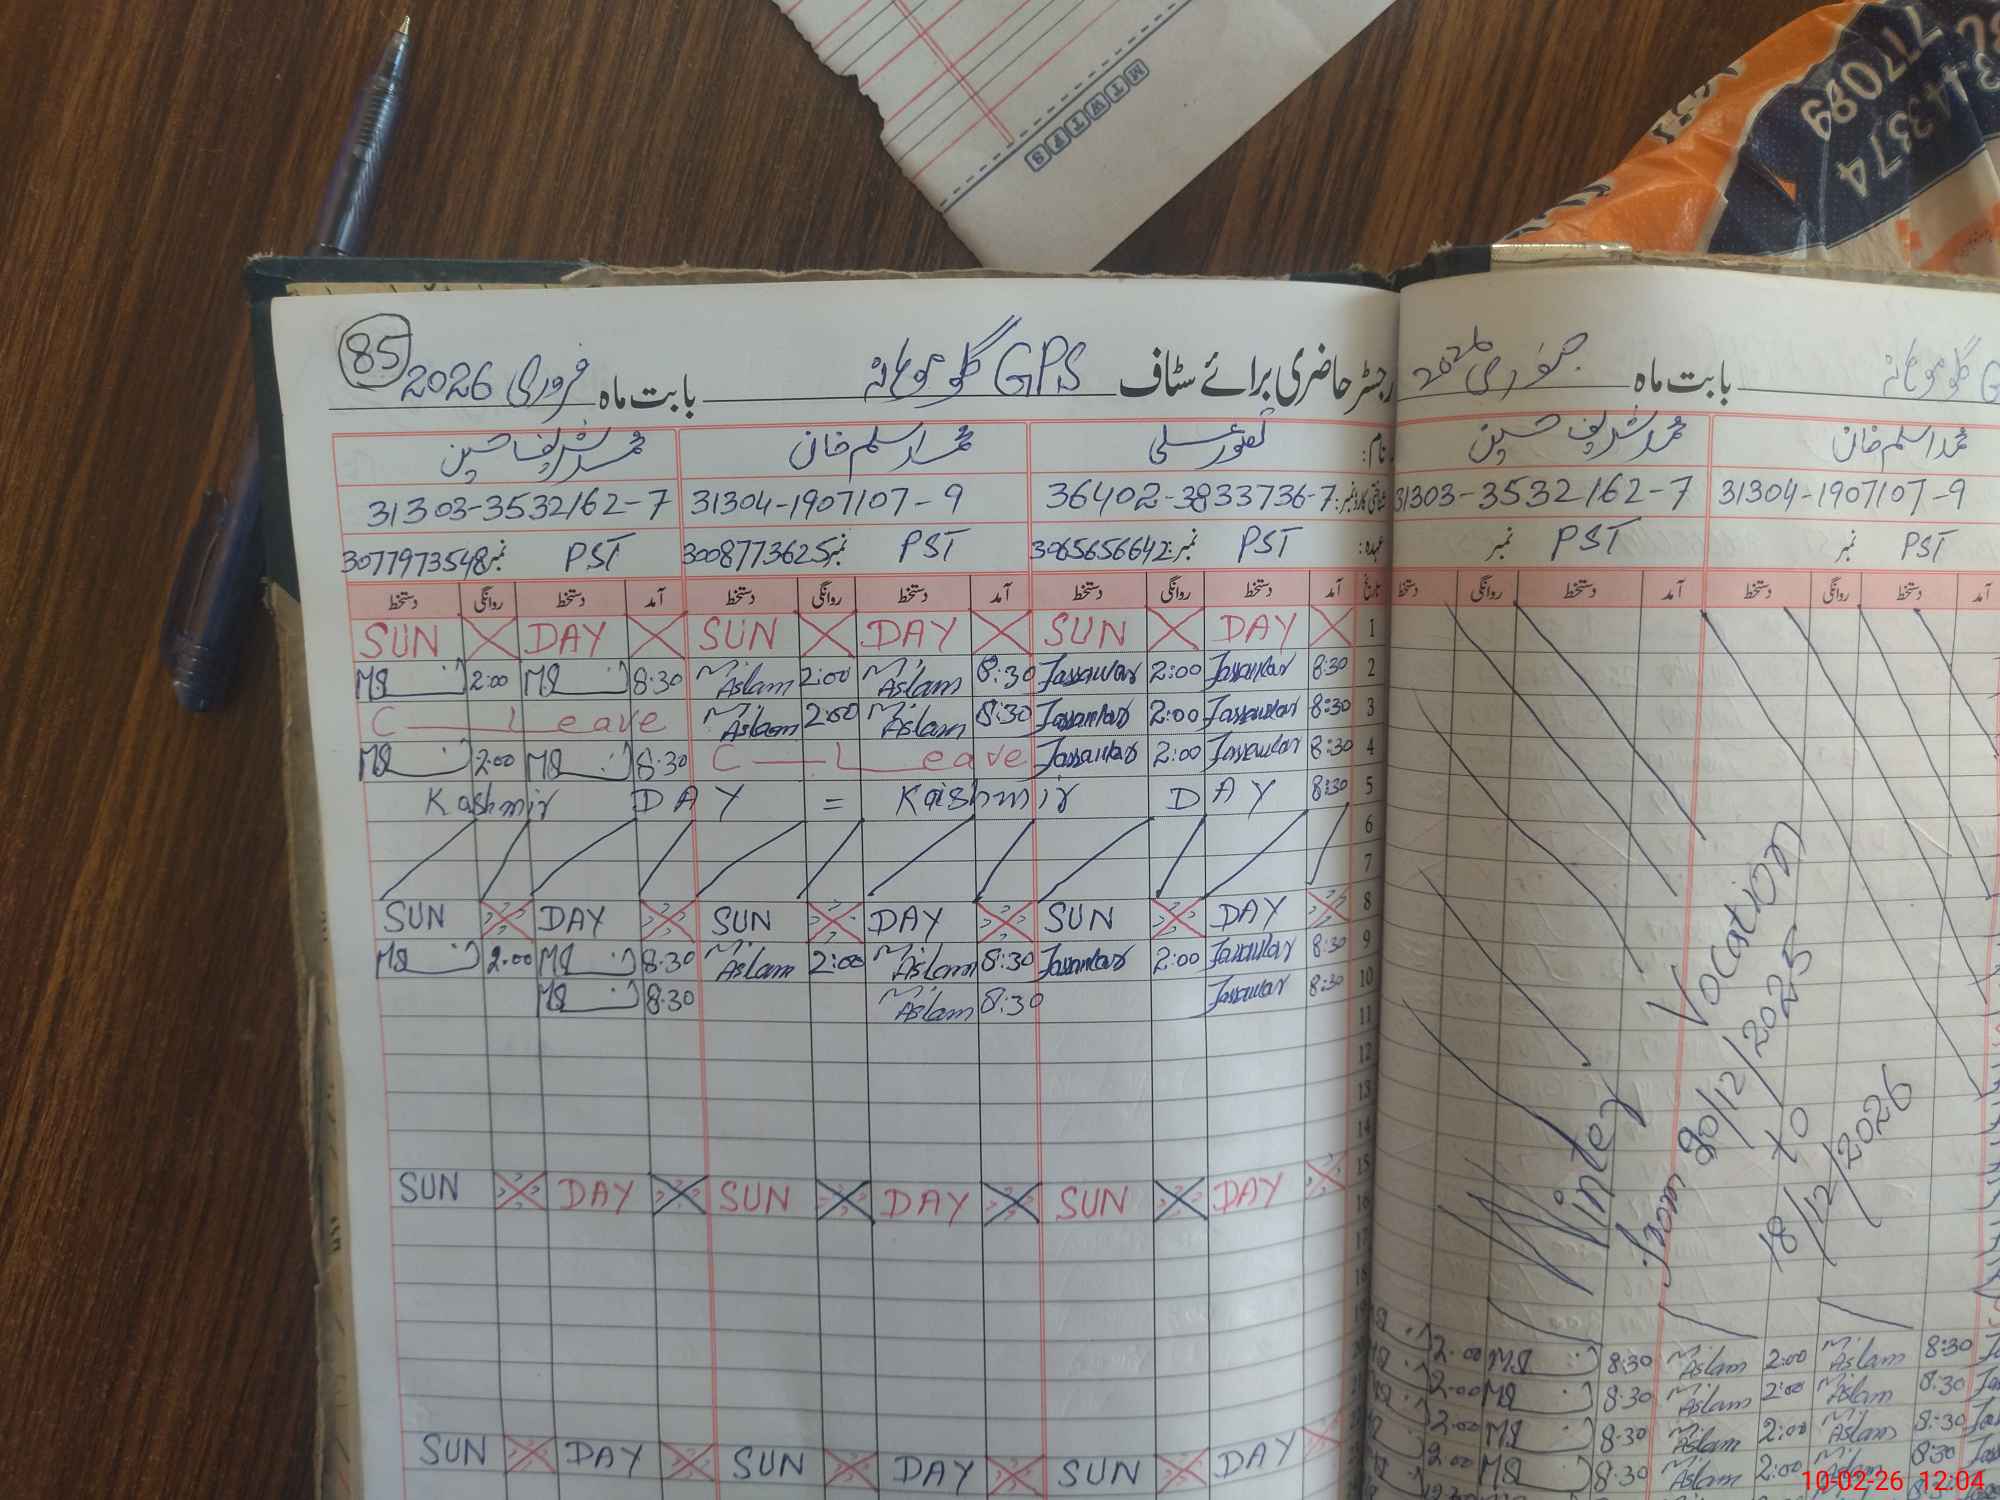 M T W T F S
77089
143374
85
رجسٹر حاضری برائے سٹاف GPS بابت ماہ فروری 2026
نام: تصور علی محمد اسلم خان محمد شریف حسین
36402-3833736-7 31304-1907107-9 31303-3532162-7
عہدہ: PST نمبر: 3065656642 PST نمبر 3008773625 PST نمبر 3077973548
تاریخ آمد دستخط روانگی دستخط آمد دستخط روانگی دستخط آمد دستخط روانگی دستخط
SUN DAY SUN DAY SUN DAY 1
MS 2:00 MS 8:30 M. Aslam 2:00 M. Aslam 8:30 2:00 8:30 2
C Leave M. Aslam 2:00 M. Aslam 8:30 2:00 8:30 3
MS 2:00 MS 8:30 C Leave 2:00 8:30 4
Kashmir DAY = Kaishmir DAY 8:30 5
6
7
SUN DAY SUN DAY SUN DAY 8
MS 2:00 MS 8:30 M. Aslam 2:00 M. Aslam 8:30 2:00 8:30 9
MS 8:30 M. Aslam 8:30 8:30 10
11
12
13
14
SUN DAY SUN DAY SUN DAY 15
16
17
18
SUN DAY SUN DAY SUN DAY
بابت ماہ جنوری 2026
محمد اسلم خان محمد شریف حسین
31304-1907107-9 31303-3532162-7
PST نمبر PST نمبر
آمد دستخط روانگی دستخط آمد دستخط روانگی دستخط
Winter Vocation
from 20/12/2025
to
18/12/2026
2:00 MS 8:30 M. Aslam 2:00 M. Aslam 8:30
2:00 MS 8:30 M. Aslam 2:00 M. Aslam 8:30
2:00 MS 8:30 M. Aslam 2:00 M. Aslam 8:30
2:00 MS 8:30 M. Aslam 2:00 M. Aslam 8:30
10-02-26 12:04